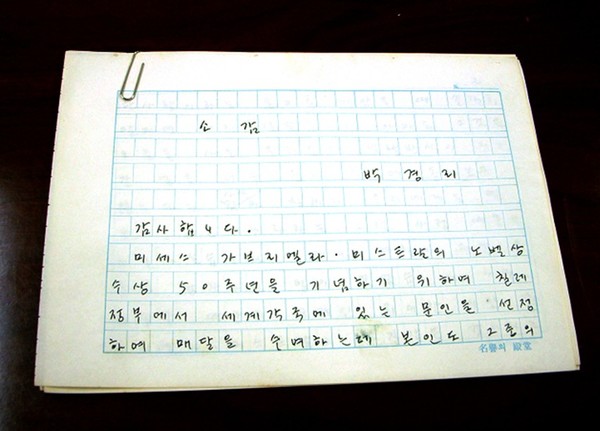 소 감
박 경 리
감사합니다.
미세스 가브리엘라·미스트랄의 노벨상
수상 50주년을 기념하기 위하여 칠레
정부에서 세계각국에 있는 문인을 선정
하여 매달을 수여하는데 본인도 그중의
名譽의 殿堂